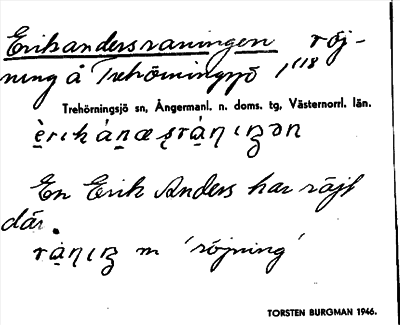 Erikandersraningen röj-
ning å Trehörningsjö 1/118
Trehörningsjö sn, Ångermanl. n. doms. tg, Västernorrl. län.
En Erik Anders har röjt
där.
m 'röjning'
TORSTEN BURGMAN 1946.